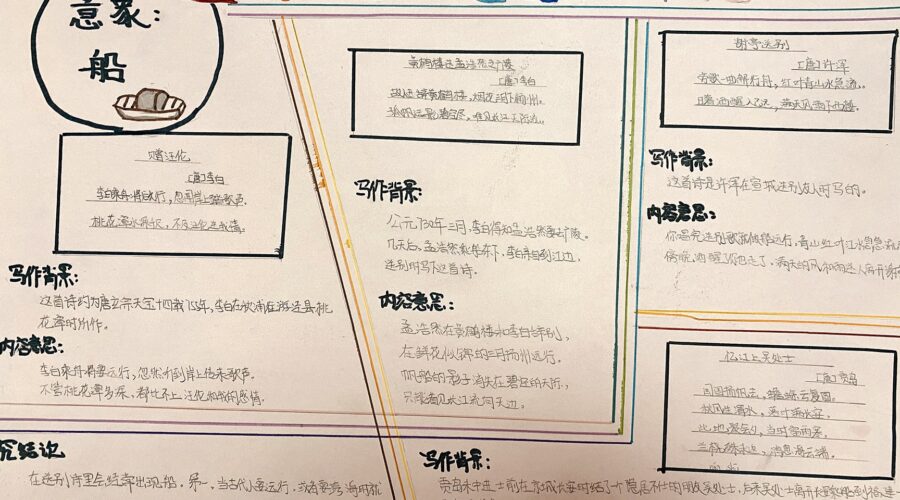 意象：
船
赠汪伦
[唐]李白
李白乘舟将欲行，忽闻岸上踏歌声。
桃花潭水深千尺，不及汪伦送我情。
写作背景：
这首诗约为唐玄宗天宝十四载755年，李白在游泾县桃
花潭时所作。
内容意思：
李白乘舟将要远行，忽然听到岸上传来歌声。
不管桃花潭多深，都比不上汪伦和我的感情。
黄鹤楼送孟浩然之广陵
[唐]李白
故人西辞黄鹤楼，烟花三月下扬州。
孤帆远影碧空尽，唯见长江天际流。
写作背景：
公元730年三月，李白得知孟浩然要去广陵。
几天后，孟浩然乘船东下，李白亲自到江边
送别时写下这首诗。
内容意思：
孟浩然在黄鹤楼和李白辞别，
在鲜花似锦的三月扬州远行。
帆船的影子消失在碧空的天际，
只能看见长江流向天边。
谢亭送别
[唐]许浑
劳歌一曲解行舟，红叶青山水急流。
日暮酒醒人已远，满天风雨下西楼。
写作背景：
这首诗是许浑在宣城送别友人时写的。
内容意思：
你唱完送别歌就解船远行，青山红叶江水急急流
傍晚，酒醒你也走了，满天的风和雨
忆江上吴处士
[唐]贾岛
闽国扬帆去，蟾蜍亏复圆。
秋风生渭水，落叶满长安。
此地聚会夕，当时雷雨寒。
兰桡殊未返，消息海云端。
究结论
在送别诗里会经常出现船，第一，当古代人要远行，
写作背景：
贾岛未中进士前在京城长安时结了一个隐居不仕的朋友吴处士，后来吴处士离开长安